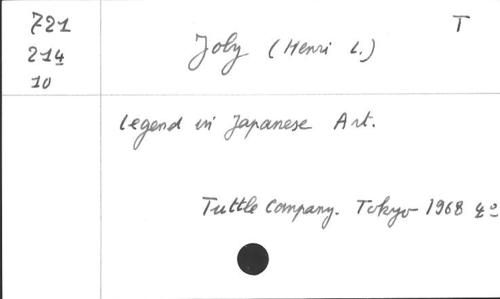 721
214
10
T
Joly (Henri L.)
Legend in Japanese Art.
Tuttle Company. Tokyo 1968 4º